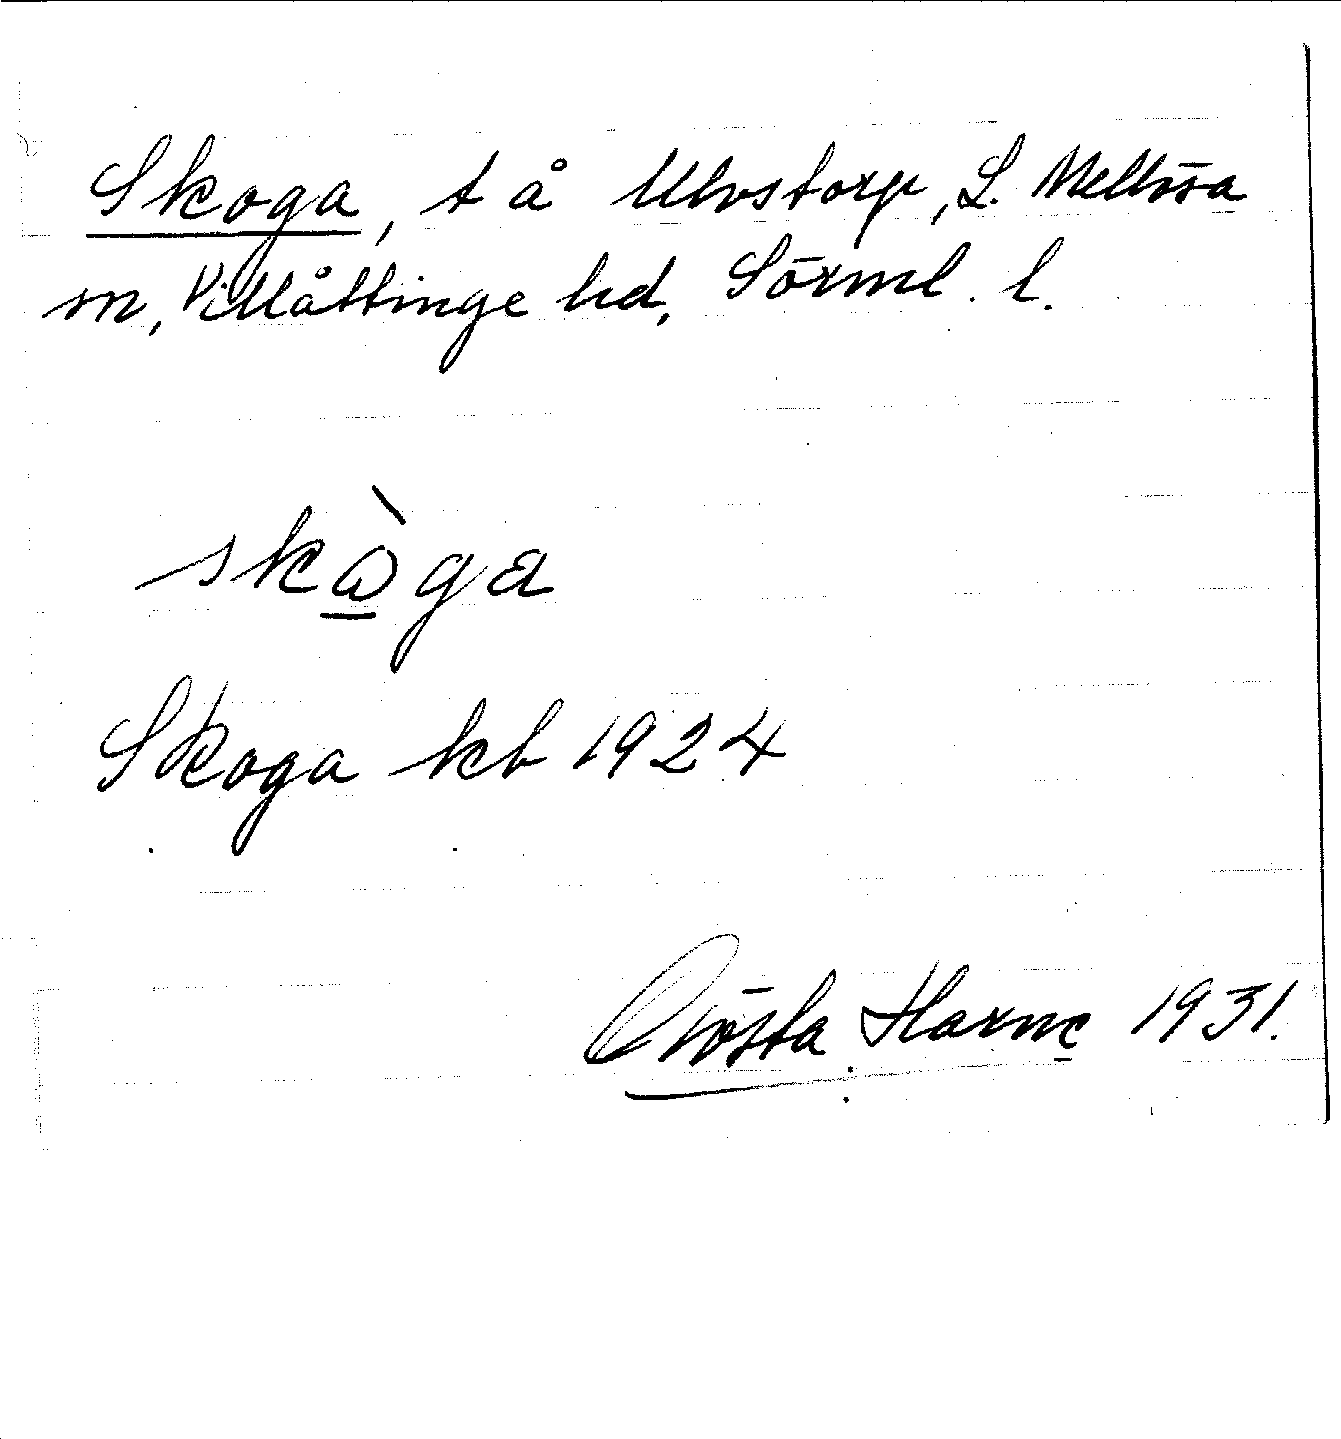 Skoga, t å Ulvstorp, L. Mellösa
sn, Villåttinge hd, Sörml. l.
skὼ̠ga
Skoga kb 1924
Gösta Harne 1931.